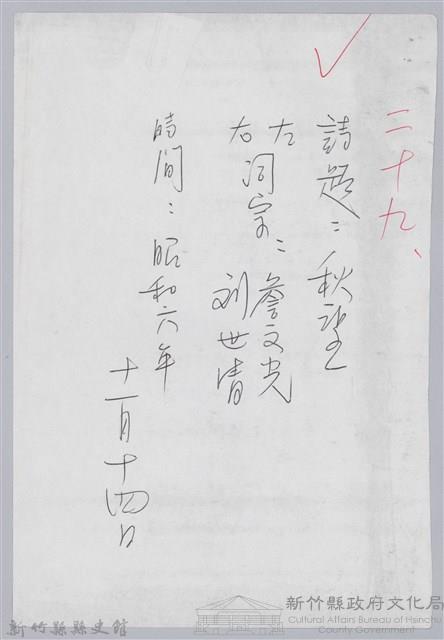 二十九、
詩題：秋望
左右詞宗：詹文光
刘世清
時間：昭和六年
十一月十四日
新竹縣縣史館
新竹縣政府文化局
Cultural Affairs Bureau of Hsinchu
County Government